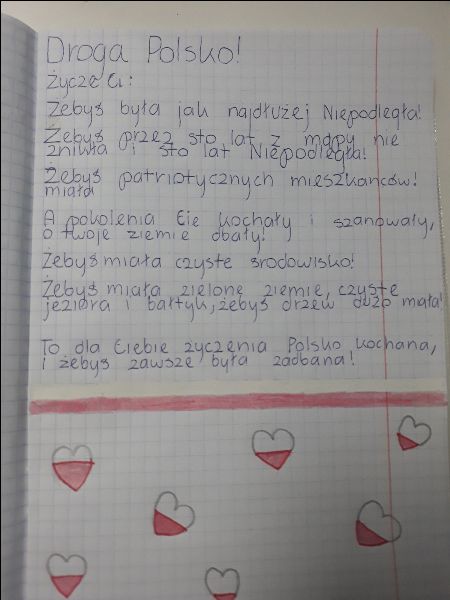 Droga Polsko!
Życzę Ci:
Żebyś była jak najdłużej Niepodległa!
Żebyś przez sto lat z mapy nie
znikła i sto lat Niepodległa!
Żebyś patriotycznych mieszkańców!
miała
A pokolenia Cię kochały i szanowały,
o twoje ziemie dbały!
Żebyś miała czyste środowisko!
Żebyś miała zielone ziemie, czyste
jeziora i bałtyk, żebyś drzew dużo miała!
To dla Ciebie życzenia Polsko kochana,
i żebyś zawsze była zadbana!